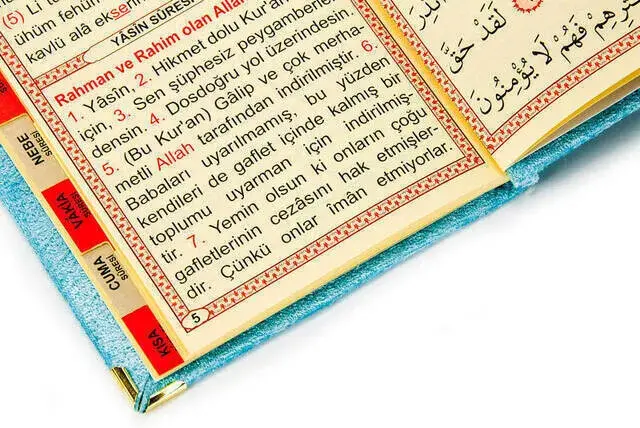 (5) Li tü
ühüm fehüm
kavlü alâ ekseri
YÂSİN SÛRESİ
Rahman ve Rahim olan Allah
1. Yâsîn, 2. Hikmet dolu Kur'an
için, 3. Sen şüphesiz peygamberler
densin. 4. Dosdoğru yol üzerindesin.
5. (Bu Kur'an) Gâlip ve çok merha-
metli Allah tarafından indirilmiştir. 6.
Babaları uyarılmamış, bu yüzden
kendileri de gaflet içinde kalmış bir
toplumu uyarman için indirilmiş-
tir. 7. Yemin olsun ki onların çoğu
gafletlerinin cezâsını hak etmişler-
dir. Çünkü onlar imân etmiyorlar.
5
NEBE SÛRESİ
VÂKIA SÛRESİ
CUMA SÛRESİ
KISA
لَقَدْ حَقَّ
فَهُمْ لَا يُؤْمِنُونَ